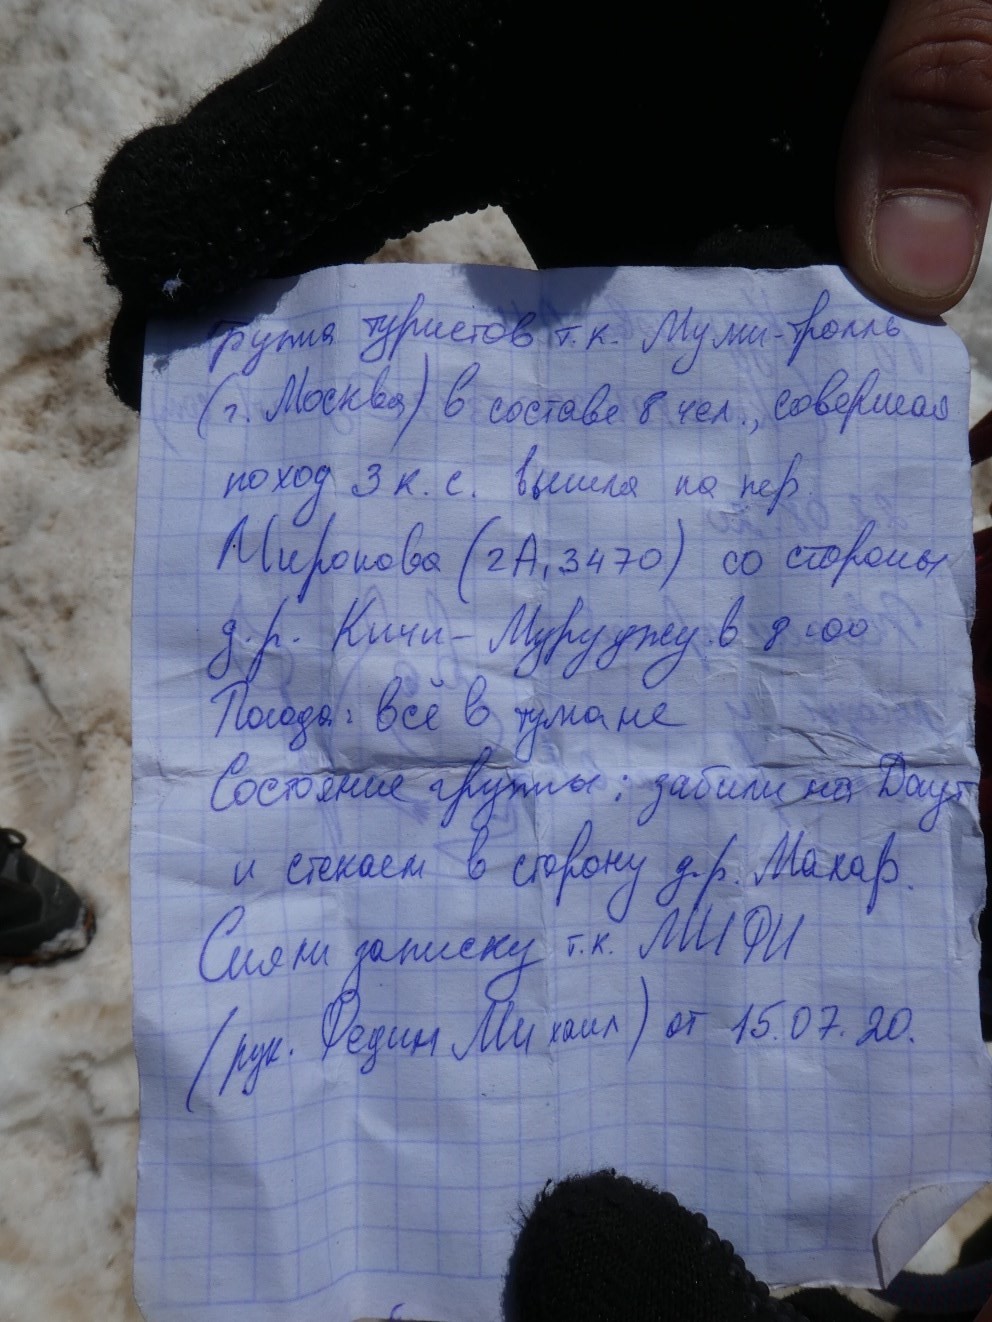 Группа туристов т.к. Муми-тролль
(г. Москва) в составе 8 чел., совершая
поход 3 к.с. вышла на пер.
Миронова (2А, 3470) со стороны
д.р. Кичи-Муруджу в 8:00
Погода: всё в тумане
Состояние группы: забили на Даут
и стекаем в сторону д.р. Махар.
Сняли записку т.к. МИФИ
(рук. Федин Михаил) от 15.07.20.